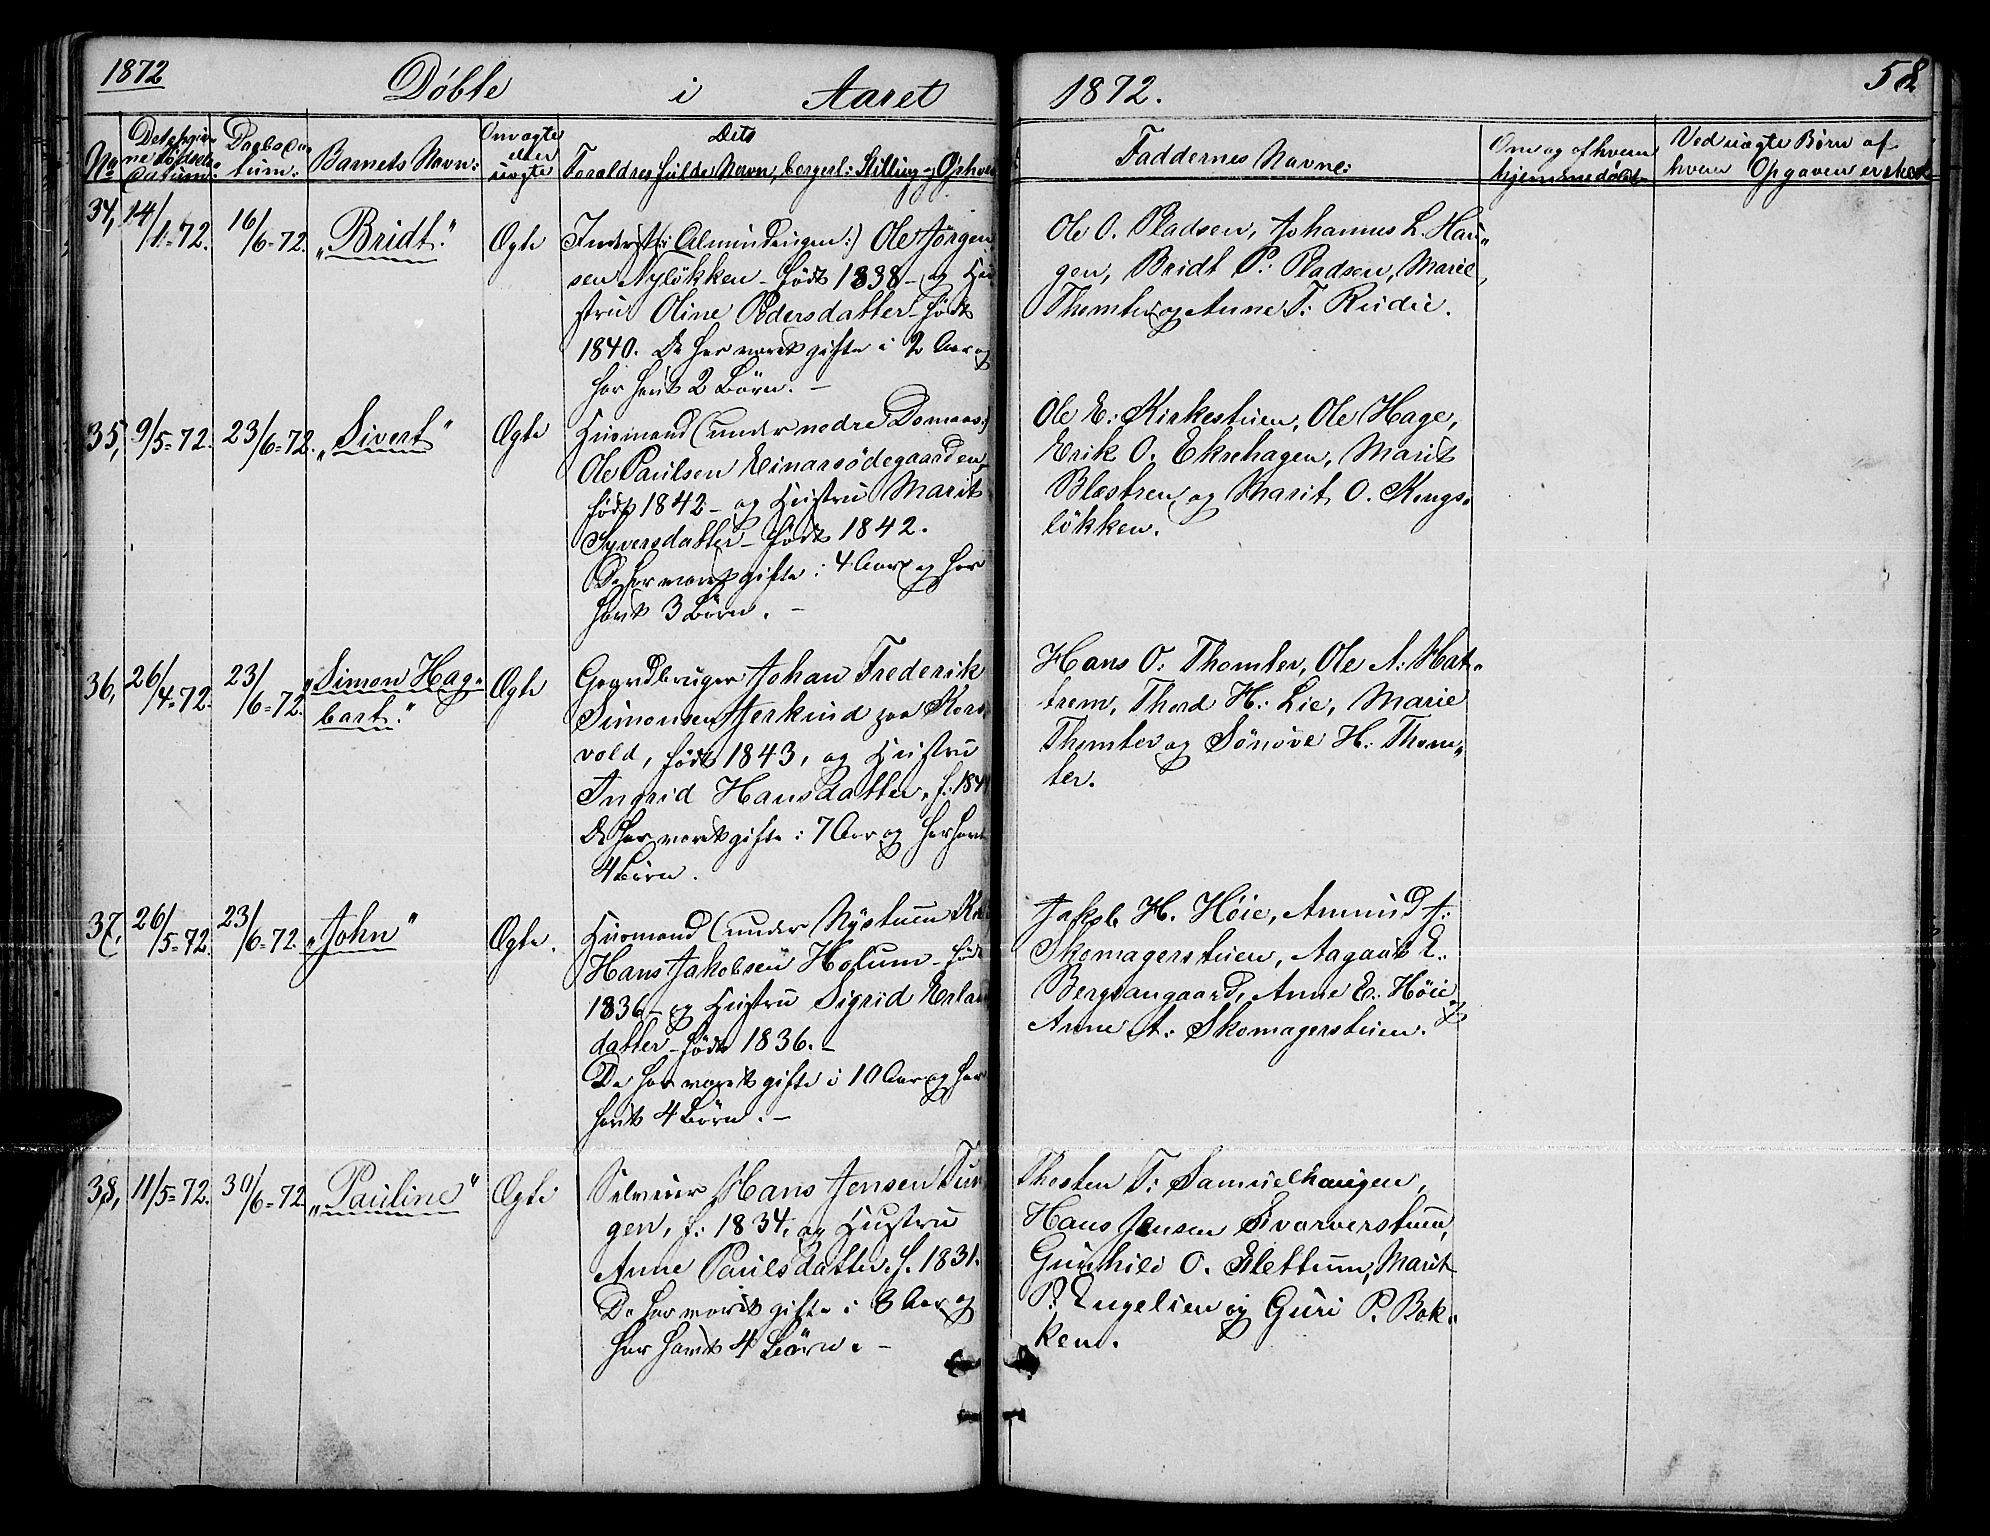 1872
Døbte i Aaret
1872.
58
No
Datum:
Daabsda-
tum:
Barnets Navn:
Om ægte
eller
uægte
Dets
Forældres fulde Navn, borgerl: Stilling og Ophold
Faddernes Navne:
Om og af hvem
hjemmedøbt
Ved uægte Børn af
hvem Opgaven er skeet
34, 14/1-72. 16/6-72. "Bridt." Ægte
Inderst (: Almindingen:) Ole Jørgen-
sen Nyløkken - født 1838 - og Hu-
stru Oline Pedersdatter - født
1840. De har været gifte i 2 Aar og
har havt 2 Børn. -
Ole O. Pladsen, Johannes L. Hau-
gen, Bridt P: Pladsen, Marie
Thomter og Anne T: Rudie.
35, 9/5-72. 23/6-72. "Sivert" Ægte
Husmand (under nedre Domaas)
Ole Paulsen Einarsødegaarden
født 1842 - og Hustru Marit
Syversdatter - født 1842.
De har været gifte i 4 Aar og har
havt 3 Børn. -
Ole E: Kirkestuen, Ole Hage,
Erik O. Ekrehagen, Marit
Blæstren og Marit O. Kongs-
løkken.
36, 26/4-72. 23/6-72. "Simon Hag-
bart." Ægte
Gaardbruger Johan Frederik
Simonsen Hjerkind paa Kors-
vold, født 1843, og Hustru
Ingrid Hansdatter, f: 184
De har været gifte i 7 Aar og har havt
4 Børn.
Hans O: Thomter, Ole A: Hat-
trem, Thord H: Lie, Marie
Thomter og Sønøve H: Thom-
ter.
37, 26/5-72. 23/6-72. "John" Ægte.
Husmand (under Nystuen
Hans Jakobsen Holum - født
1836 - og Hustru Sigrid Erlands
datter - født 1836. -
De har været gifte i 10 Aar og har
havt 4 Børn. -
Jakob H. Høie, Amund J:
Skomagerstuen, Aagaat E.
Bergvangaard, Anne E: Høie og
Anne A: Skomagerstuen.
38, 11/5-72. 30/6-72. "Pauline" Ægte
Selveier Hans Jensen
gen, f: 1834, og Hustru
Anne Paulsdatter, f. 1831.
De har været gifte i 8 Aar og
har havt 4 Børn. -
Thosten T: Samuelhaugen,
Hans Jensen Svarverstuen,
Gunhild O. Slettum, Marit
P: Engelien og Guri P. Bak-
ken.